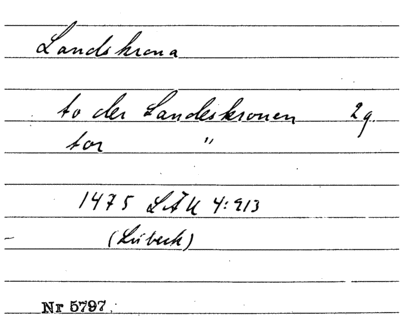 Landskrona
to der Landeskronen 2 g.
tor "
1475 LÄU 4:213
(Lübeck)
Nr 5797.